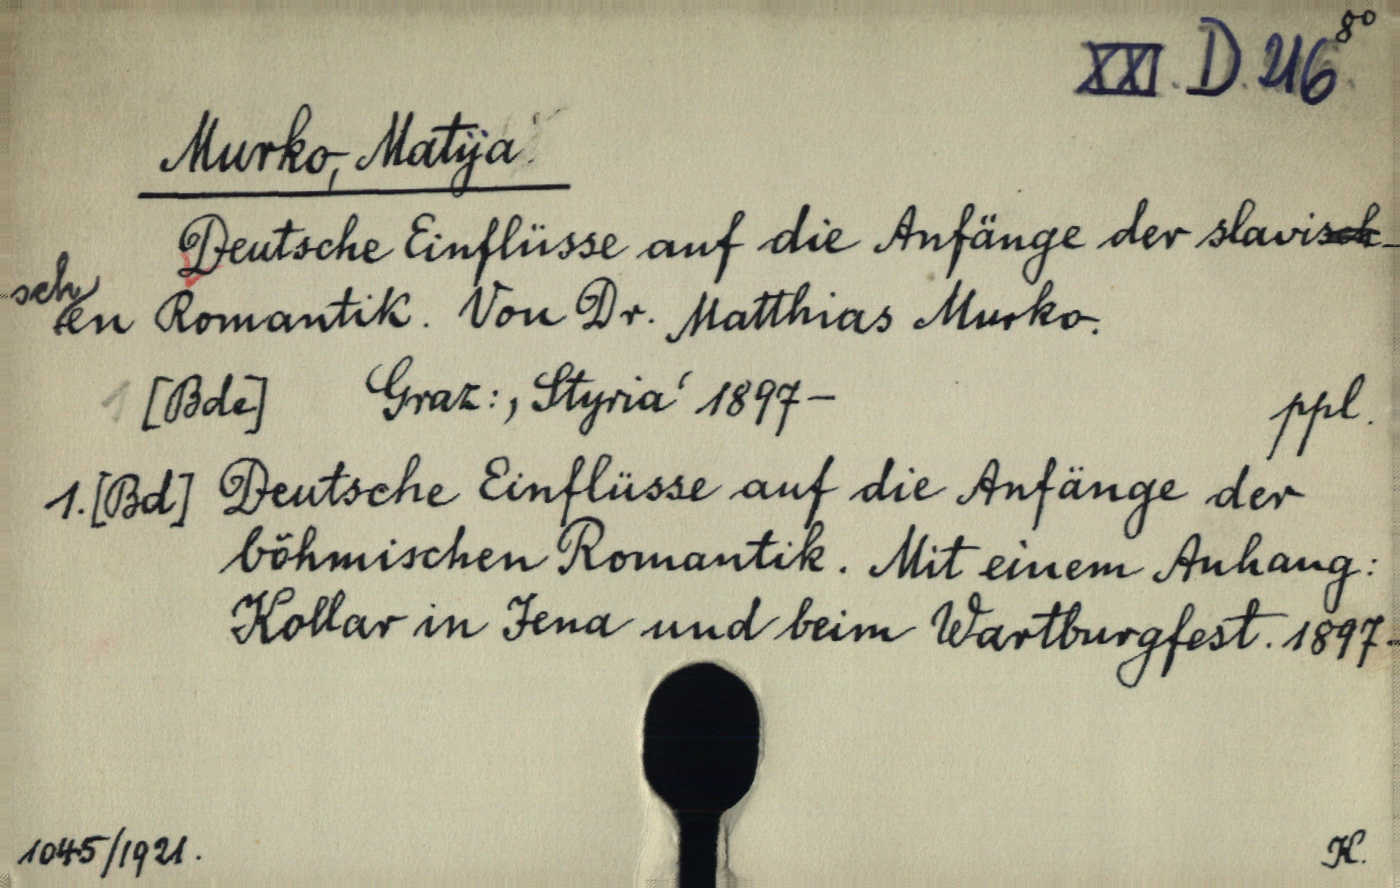 XXI. D. 216 8°
Murko, Matija
Deutsche Einflüsse auf die Anfänge der slavisch-
schen Romantik. Von Dr. Matthias Murko.
1 [Bde] Graz: ‚Styria‘ 1897– ppl.
1. [Bd] Deutsche Einflüsse auf die Anfänge der
böhmischen Romantik. Mit einem Anhang:
Kollar in Jena und beim Wartburgfest. 1897-
1045/1921. K.